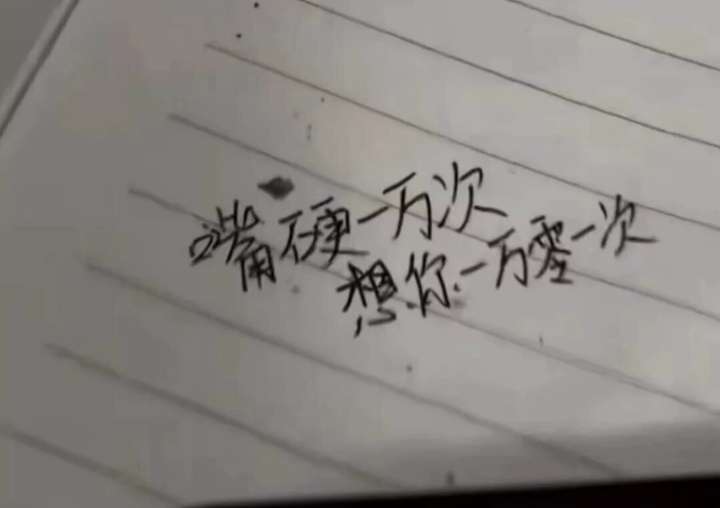 嘴硬一万次
想你一万零一次